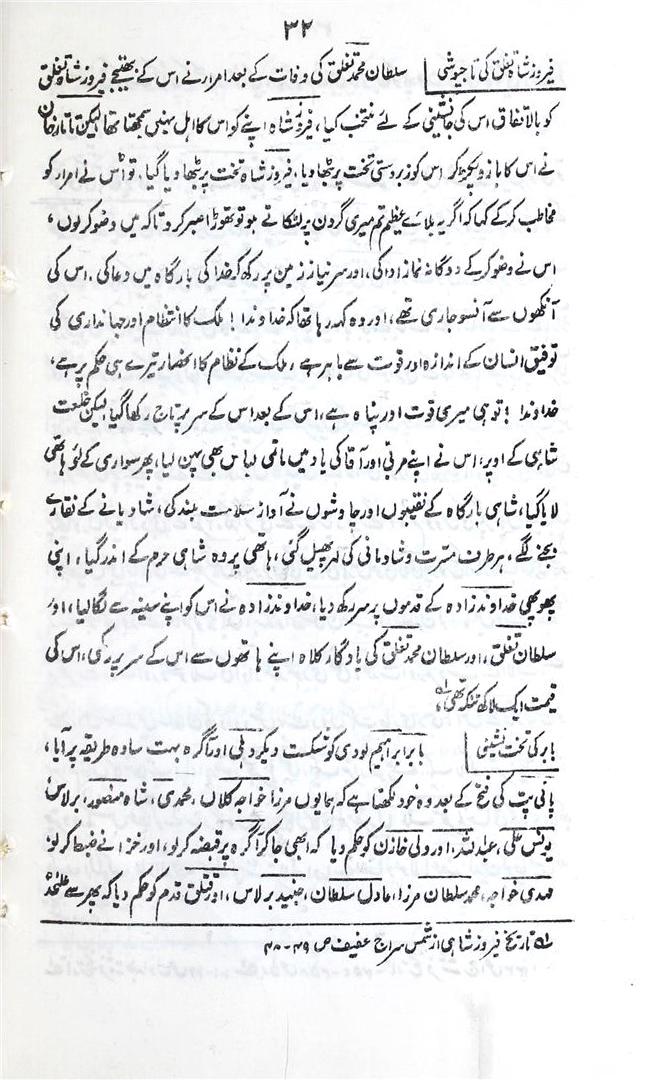 ۳۲
فیروز شاہ تغلق کی تاجپوشی سلطان محمد تغلق کی وفات کے بعد امراء نے اس کے بھتیجے فیروز شاہ تغلق
کو بالاتفاق اس کی جانشینی کے لئے منتخب کیا، فیروز شاہ اپنے کو اس کا اہل نہیں سمجھتا تھا لیکن تاتار خان
نے اس کا بازو پکڑ کر اس کو زبردستی تخت پر بٹھا دیا، فیروز شاہ تخت پر بٹھا دیا گیا، تو اس نے امراء کو
مخاطب کرکے کہا کہ اگر یہ بلائے عظیم تم میری گردن پر لٹکاتے ہو تو تھوڑا صبر کرو تاکہ میں وضو کرلوں،
اس نے وضو کرکے دوگانہ نماز ادا کی، اور سر نیاز زمین پر رکھ کر خدا کی بارگاہ میں دعا کی۔ اس کی
آنکھوں سے آنسو جاری تھے، اور وہ کہہ رہا تھا کہ خداوندا! ملک کا انتظام اور جہانداری کی
توفیق انسان کے اندازہ اور قوت سے باہر ہے، ملک کے نظام کا انحصار تیرے ہی حکم پر ہے،
خداوندا! تو ہی میری قوت اور پناہ ہے، اس کے بعد اس کے سر پر تاج رکھا گیا، لیکن خلعت
شاہی کے اوپر، اس نے اپنے مربی اور آقا کی یاد میں ماتمی لباس بھی پہن لیا، پھر سواری کے لئے ہاتھی
لایا گیا، شاہی بارگاہ کے نقیبوں اور چاوشوں نے آواز سلامت بلند کی، شادیانے کے نقارے
بجنے لگے، ہر طرف مسرت و شادمانی کی لہر پھیل گئی، ہاتھی پر وہ شاہی حرم کے اندر گیا، اپنی
پھوپھی خداوندزادہ کے قدموں پر سر رکھ دیا، خداوندزادہ نے اس کو اپنے سینہ سے لگا لیا، اور
سلطان تغلق، اور سلطان محمد تغلق کی یادگار کلاہ اپنے ہاتھوں سے اس کے سر پر رکھی، اس کی
قیمت ایک لاکھ تنکہ تھی، لہ
بابر کی تخت نشینی بابر ابراہیم لودی کو شکست دیکر دلی اور آگرہ بہت سادہ طریقہ پر آیا،
پانی پت کی فتح کے بعد وہ خود لکھتا ہے کہ ہمایوں مرزا خواجہ کلاں، محمدی، شاہ منصور، برلاس
یونس علی، عبداللہ، اور ولی خازن کو حکم دیا کہ ابھی جاکر آگرہ پر قبضہ کرلو، اور خزانے ضبط کرلو،
مہدی خواجہ، محمد سلطان مرزا، عادل سلطان، جنید برلاس، اور قتلق قدم کو حکم دیا کہ پھر سے علیحدہ
لہ تاریخ فیروز شاہی از شمس سراج عفیف ص ۴۹-۴۸